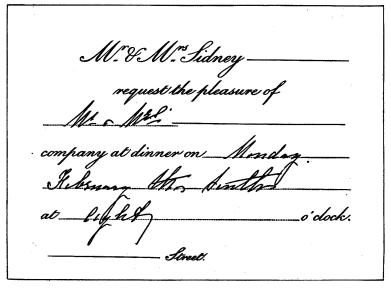 Mr. & Mrs. Sidney
request the pleasure of
Mr. & Mrs.
company at dinner on Monday
February the tenth
at eight o'clock.
Street.